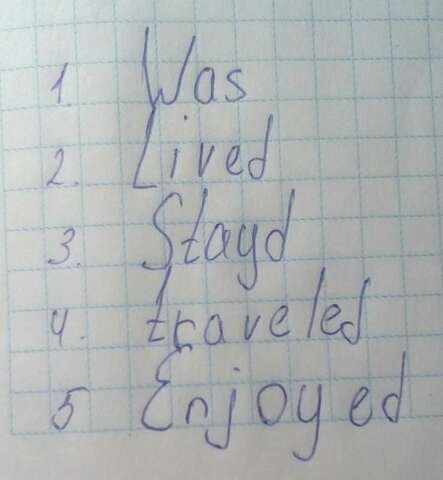 1. Was
2. Lived
3. Stayd
4. traveled
5 Enjoyed